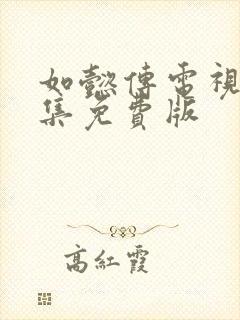 如懿傳電視
集免費版
高紅霞